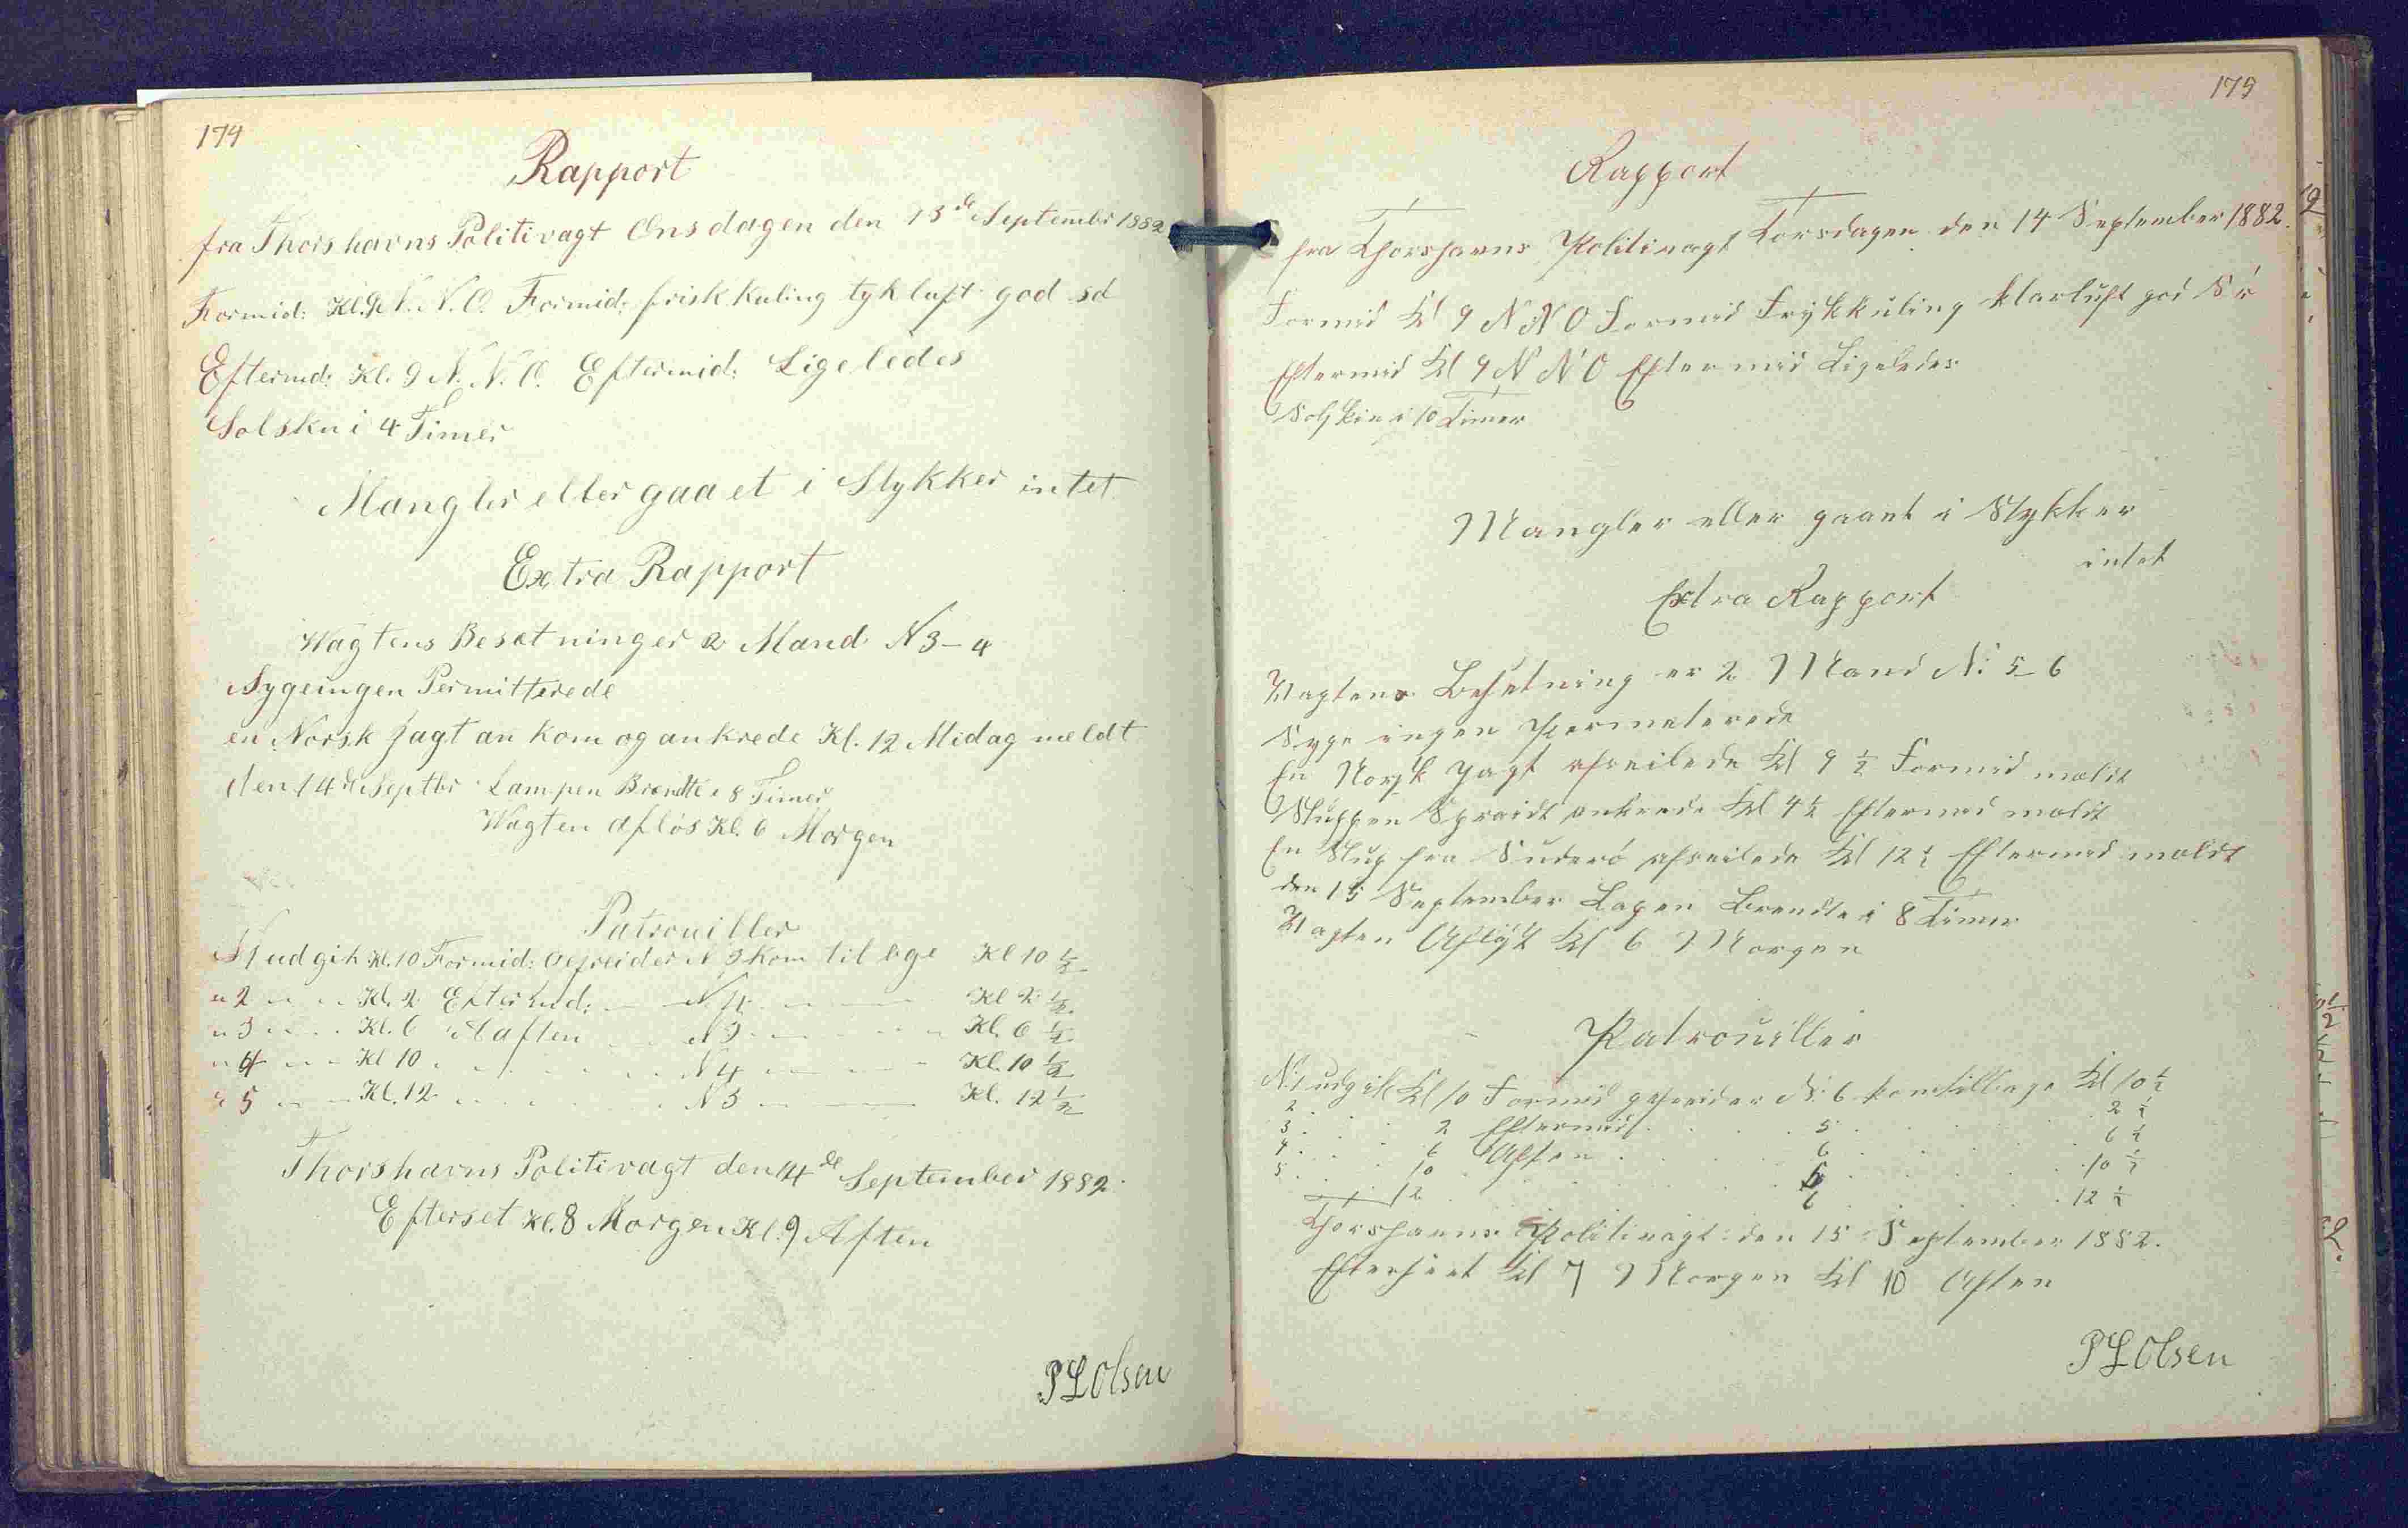 174
Rapport
fra Thorshavns Politivagt Onsdagen den 13de Septembr 1882
Formid: Kl. 9 N.N.O. Formid: frisk kuling tykluft god sø
Eftermd: Kl. 9 N.N.O. Eftermid: Ligeledes
Solskn i 4 Timer
Mangler eller gaaet i Stykker intet
Extra Rapport
Wagtens Besætning er 2 Mand N 3-4
Syge ingen Permitterede
en Norsk Jagt an kom og ankrede Kl. 12 Midag meldt
den 14de Septbr Lampen Brændte i 8 Timer
Wagten afløs Kl. 6 Morgen
Patrouiller
N 1 udgik Kl. 10 Formid: Gefreider N 3 kom tilbge Kl 10 1/2
" 2 " " Kl. 2 Eftermd: — N 4 — Kl 2 1/2
" 3 " " Kl. 6 Aaften " N 3 " Kl. 6 1/2
" 4 " " Kl 10 " " N 4 — Kl. 10 1/2
" 5 " " Kl. 12 " " N 3 — Kl. 12 1/2
Thorshavns Politivagt den 14de September 1882.
Efterset Kl. 8 Morgen Kl. 9 Aften
P L Olsen
175
Rapport
fra Thorshavns Politivagt Torsdagen den 14 September 1882.
Formid Kl 9 N N O Formid Friskkuling klarluft god Sø
Eftermid Kl 9 N N O Eftermid Ligeledes
Solskin i 10 Timer
Mangler eller gaaet i Stykker
intet
Extra Rapport
Vagtens Besætning er 2 Mand N: 5-6
Syge ingen Permeterede
En Norsk Jagt afseilede Kl 9 1/2 Formid meldt
Sluppen ankrede Kl 4 1/2 Eftermid meldt
En Slup fra Suderö afseilede Kl 12 1/2 Eftermid meldt
den 15 September Lapen Brendte i 8 Timer
Vagten Afløst Kl 6 Morgen
Patrouiller
N: 1 udgik Kl 10 Formid gefreider N: 6 kom tilbage Kl 10 1/2
2 . . . 2 Eftermid . . . 5 . . . 2 1/2
3 . . . 6 Aften . . . 6 . . . 6 1/2
4 . . . 10 . . . 5 . . . 10 1/2
5 . . . 12 . . . 6 . . . 12 1/2
Thorshavns Politivagt den 15 September 1882.
Efterseet Kl 7 Morgen Kl 10 Aften
P L Olsen